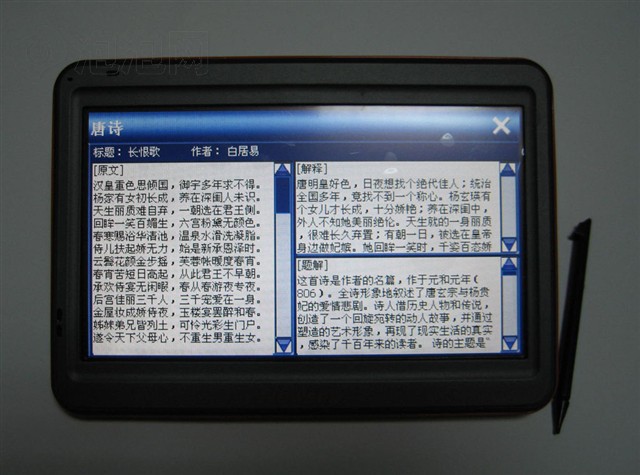 唐诗
标题：长恨歌 作者：白居易
[原文]
汉皇重色思倾国，御宇多年求不得。
杨家有女初长成，养在深闺人未识。
天生丽质难自弃，一朝选在君王侧。
回眸一笑百媚生，六宫粉黛无颜色。
春寒赐浴华清池，温泉水滑洗凝脂。
侍儿扶起娇无力，始是新承恩泽时。
云鬓花颜金步摇，芙蓉帐暖度春宵。
春宵苦短日高起，从此君王不早朝。
承欢侍宴无闲暇，春从春游夜专夜。
后宫佳丽三千人，三千宠爱在一身。
金屋妆成娇侍夜，玉楼宴罢醉和春。
姊妹弟兄皆列土，可怜光彩生门户。
遂令天下父母心，不重生男重生女。
[解释]
唐明皇好色，日夜想找个绝代佳人；统治
全国多年，竟找不到一个称心。杨玄瑛有
个女儿才长成，十分娇艳；养在深闺中，
外人不知她美丽绝伦。天生就的一身丽质
，很难长久弃置；有朝一日，被选在皇帝
身边做妃嫔。她回眸一笑时，千姿百态娇
[题解]
这首诗是作者的名篇，作于元和元年（
806）。全诗形象地叙述了唐玄宗与杨贵
妃的爱情悲剧。诗人借历史人物和传说，
创造了一个回旋宛转的动人故事，并通过
塑造的艺术形象，再现了现实生活的真实
，感染了千百年来的读者。诗的主题是"